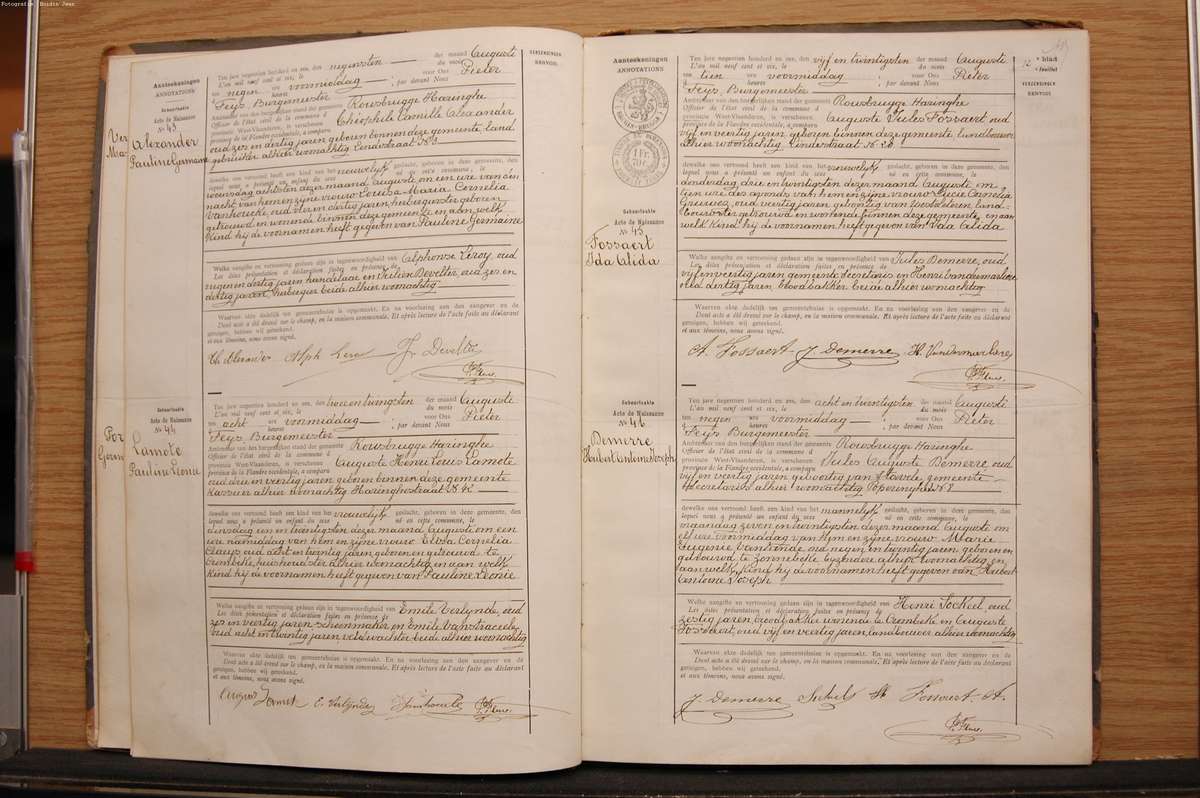 Fotografie : Boudin Jean
Aanteekeningen
ANNOTATIONS
Geboorteakte
Acte de Naissance
Nr 43
Alexander
Pauline Germaine
Ten jare negentien honderd en zes, den negensten der maand Augusti
L'an mil neuf cent et six, le du mois
te negen ure voormiddag ; voor Ons Pieter
à heures ; par devant Nous
Feys, Burgemeester
Ambtenaar van den burgerlijken stand der gemeente Rousbrugge Haringhe
Officier de l'état civil de la commune d
provincie West-Vlaanderen, is verschenen Theophile Camille Alexander
province de la Flandre occidentale, a comparu
oud zes en dertig jaren geboren binnen deze gemeente, land
gebruiker alhier woonachtig
dewelke ons heeft een kind van het vrouwelijk geslacht, geboren in deze gemeente, den
lequel nous a présenté un enfant du sexe né en cette commune, le
woensdag achtsten dezer maand Augusti om een ure van den
nacht van hem en zijne vrouw Louisa Maria Cornelia
Vanhoucke oud vier en dertig jaren, herbergierster geboren
getrouwd en wonende binnen deze gemeente en aan welk
kind hij de voornamen heeft gegeven van Pauline Germaine
Welke aangifte en vertooning gedaan zijn in tegenwoordigheid van Alphonse Leroy, oud
Les dites présentation et déclaration faites en présence de
negen en dertig jaren handelaar en Develter, oud zes en
dertig jaren, herbergier beide alhier woonachtig
Waarvan akte dadelijk ten gemeentehuize is opgemaakt. En na voorlezing aan den aangever en de
Dont acte a été dressé sur le champ, en la maison communale. Et après lecture de l'acte faite au déclarant
getuigen, hebben wij geteekend.
et aux témoins, nous avons signé.
Ch Alexander Alph Leroy Develter
Geboorteakte
Acte de Naissance
Nr 44
Lamote
Pauline Leonie
Ten jare negentien honderd en zes, den twee en twintigsten der maand Augusti
L'an mil neuf cent et six, le du mois
te acht ure voormiddag ; voor Ons Pieter
à heures ; par devant Nous
Feys Burgemeester
Ambtenaar van den burgerlijken stand der gemeente Rousbrugge Haringhe
Officier de l'état civil de la commune d
provincie West-Vlaanderen, is verschenen Auguste Henri Louis Lamote
province de la Flandre occidentale, a comparu
oud drie en veertig jaren geboren binnen deze gemeente
alhier woonachtig Haringhestraat
dewelke ons heeft een kind van het vrouwelijk geslacht, geboren in deze gemeente, den
lequel nous a présenté un enfant du sexe né en cette commune, le
dinsdag een en twintigsten dezer maand Augusti om een
ure namiddag van hem en zijne vrouw Elisa Cornelia
Claeys oud acht en twintig jaren geboren en getrouwd te
Crombeke, huishoudster alhier woonachtig en aan welk
kind hij de voornamen heeft gegeven van Pauline Leonie
Welke aangifte en vertooning gedaan zijn in tegenwoordigheid van Emile Verlynde, oud
Les dites présentation et déclaration faites en présence de
zes en veertig jaren schoenmaker en Emile Vanstraceele
oud acht en twintig jaren veldwachter beide alhier woonachtig
Waarvan akte dadelijk ten gemeentehuize is opgemaakt. En na voorlezing aan den aangever en de
Dont acte a été dressé sur le champ, en la maison communale. Et après lecture de l'acte faite au déclarant
getuigen, hebben wij geteekend.
et aux témoins, nous avons signé.
E. Verlynde
VERZENDINGEN
RENVOI.
Aanteekeningen
ANNOTATIONS
1 Fr.
Geboorteakte
Acte de Naissance
Nr 45
Fossaert
Ida Alida
Ten jare negentien honderd en zes, den vijf en twintigsten der maand Augusti
L'an mil neuf cent et six, le du mois
te tien ure voormiddag ; voor Ons Pieter
à heures ; par devant Nous
Feys, Burgemeester
Ambtenaar van den burgerlijken stand der gemeente Rousbrugge Haringhe
Officier de l'état civil de la commune d
provincie West-Vlaanderen, is verschenen Auguste Jules Fossaert oud
province de la Flandre occidentale, a comparu
vijf en veertig jaren, geboren binnen deze gemeente, landbouwer
alhier woonachtig
dewelke ons heeft een kind van het vrouwelijk geslacht, geboren in deze gemeente, den
lequel nous a présenté un enfant du sexe né en cette commune, le
donderdag drie en twintigsten dezer maand Augusti om
tien ure des avonds van hem en zijne vrouw Lucie Cornelia
oud veertig jaren, geboortig van Westvleteren, land-
bouwster getrouwd en wonende binnen deze gemeente, en aan
welk kind hij de voornamen heeft gegeven van Ida Alida
Welke aangifte en vertooning gedaan zijn in tegenwoordigheid van Jules Demerre, oud
Les dites présentation et déclaration faites en présence de
vijf en veertig jaren gemeente secretaris en Henri Vandermarliere
oud dertig jaren, broodbakker beide alhier woonachtig
Waarvan akte dadelijk ten gemeentehuize is opgemaakt. En na voorlezing aan den aangever en de
Dont acte a été dressé sur le champ, en la maison communale. Et après lecture de l'acte faite au déclarant
getuigen, hebben wij geteekend.
et aux témoins, nous avons signé.
A. Fossaert J. Demerre H. Vandermarliere
Geboorteakte
Acte de Naissance
Nr 46
Demerre
Houbert Antoine Joseph
Ten jare negentien honderd en zes, den acht en twintigsten der maand Augusti
L'an mil neuf cent et six, le du mois
te negen ure voormiddag ; voor Ons Pieter
à heures ; par devant Nous
Feys Burgemeester
Ambtenaar van den burgerlijken stand der gemeente Rousbrugge Haringhe
Officier de l'état civil de la commune d
provincie West-Vlaanderen, is verschenen Jules Auguste Demerre, oud
province de la Flandre occidentale, a comparu
vijf en veertig jaren geboortig van Stavele, gemeente
secretaris alhier woonachtig
dewelke ons heeft een kind van het mannelijk geslacht, geboren in deze gemeente, den
lequel nous a présenté un enfant du sexe né en cette commune, le
maandag zeven en twintigsten dezer maand Augusti om
elf ure voormiddag van hem en zijne vrouw Marie
Eugenie oud negen en twintig jaren, geboren en
getrouwd te Zonnebeke bijzondere alhier woonachtig en
aan welk kind hij de voornamen heeft gegeven van Houbert
Antoine Joseph
Welke aangifte en vertooning gedaan zijn in tegenwoordigheid van Henri Sockeel, oud
Les dites présentation et déclaration faites en présence de
zestig jaren, broodbakker wonende te Crombeke en Auguste
Fossaert, oud vijf en veertig jaren, landbouwer alhier woonachtig
Waarvan akte dadelijk ten gemeentehuize is opgemaakt. En na voorlezing aan den aangever en de
Dont acte a été dressé sur le champ, en la maison communale. Et après lecture de l'acte faite au déclarant
getuigen, hebben wij geteekend.
et aux témoins, nous avons signé.
J. Demerre Fossaert A.
12 e blad
feuillet
VERZENDINGEN
RENVOI.